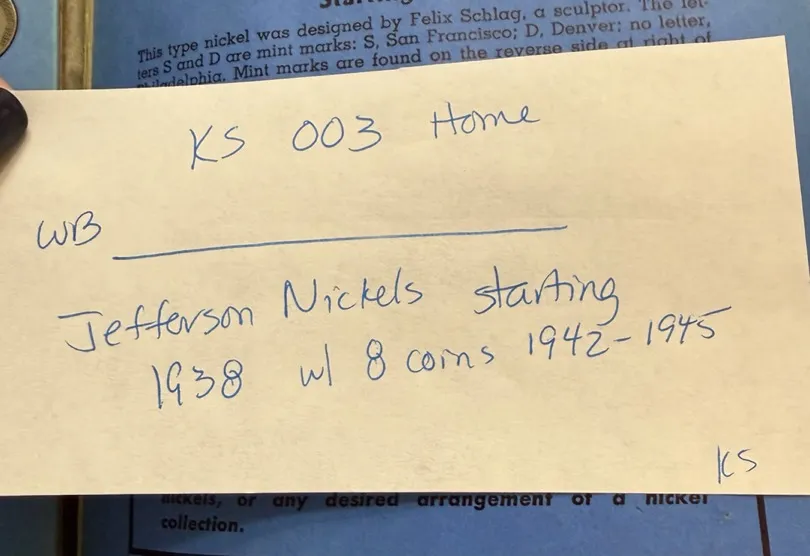 This type nickel was designed by Felix Schlag, a sculptor. The let-
ters S and D are mint marks: S, San Francisco; D, Denver; no letter,
Philadelphia. Mint marks are found on the reverse side at right of
KS 003 Home
WB
Jefferson Nickels starting
1938 w/ 8 coins 1942-1945
KS
nickels, or any desired arrangement of a nickel
collection.